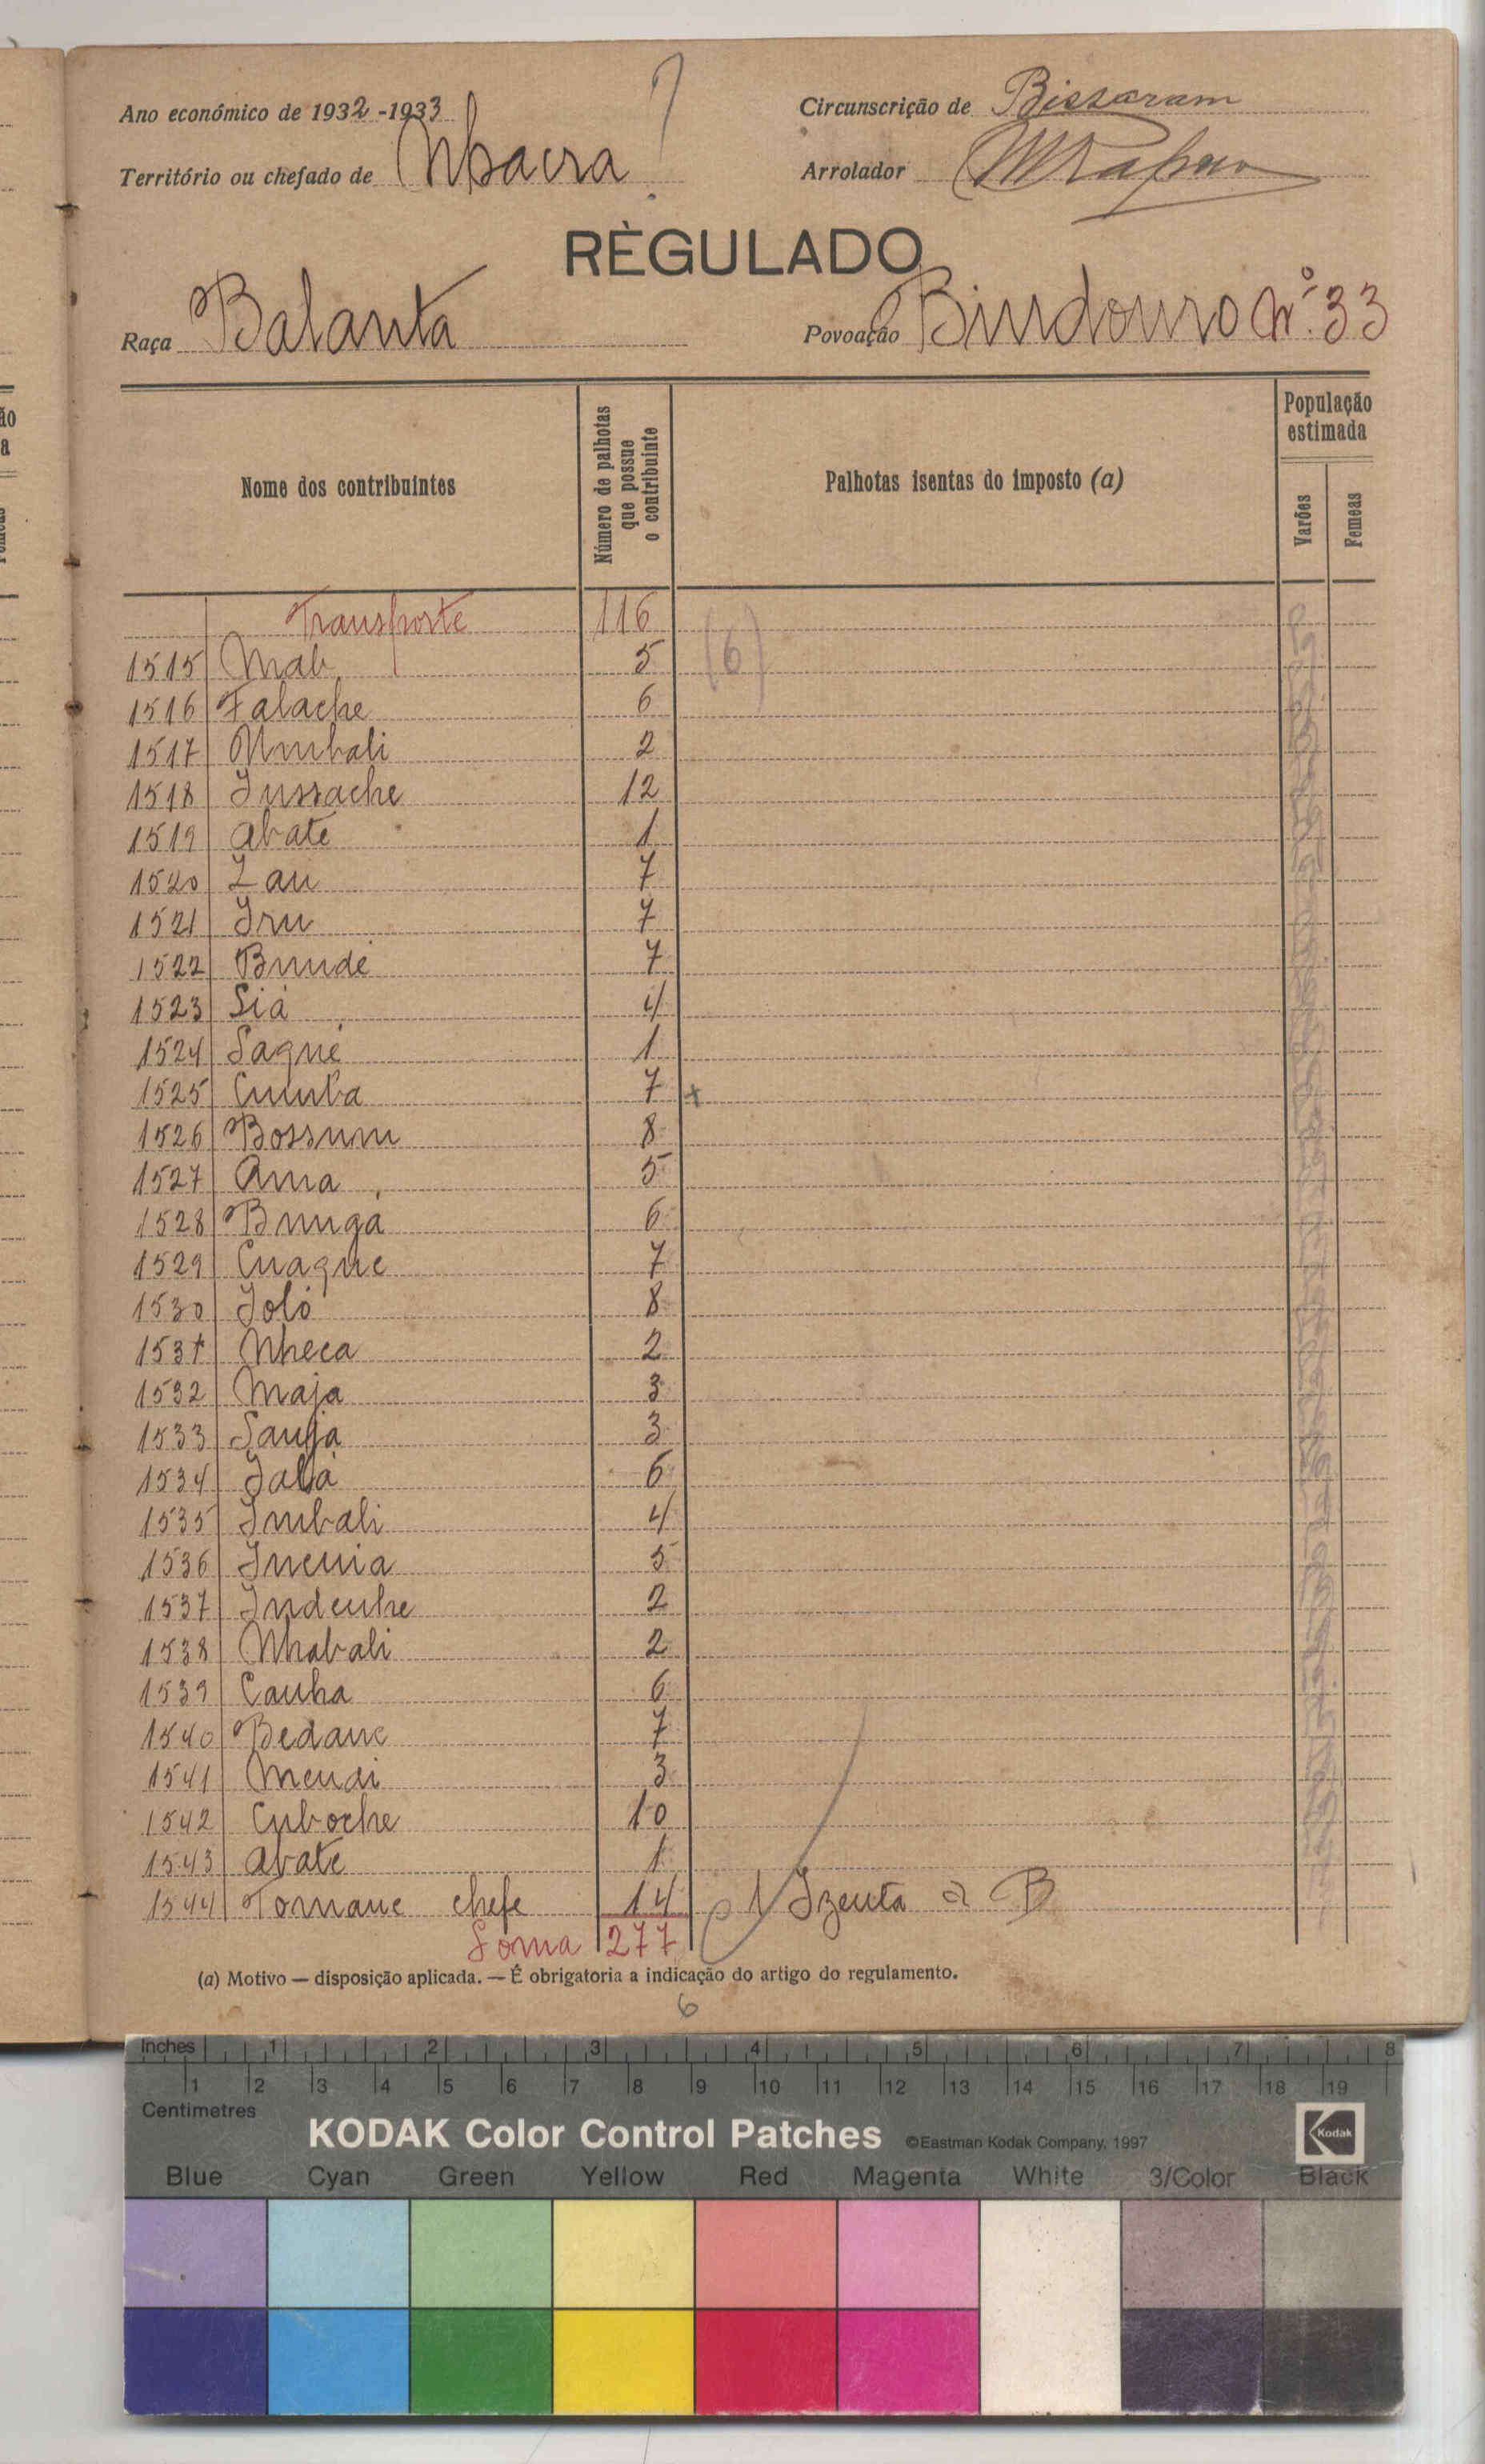 Ano económico de 1932-1933
Circunscrição de Bissoram
Território ou chefado de Nhacra ?
Arrolador
RÈGULADO
Raça Balanta
Povoação Bindouro Nº 33
Nome dos contribuintes
Número de palhotas que possue o contribuinte
Palhotas isentas do imposto (a)
População estimada
Varões
Femeas
Transporte 116
1515 Mab 5 (6)
1516 Falache 6
1517 2
1518 Jussache 12
1519 Abate 1
1520 Zau 7
1521 Iru 7
1522 Bundé 7
1523 Siá 4
1524 Sagné 1
1525 Cumba 7 x
1526 Bossum 8
1527 Ama 5
1528 Bnuga 6
1529 Cuaque 7
1530 Joló 8
1531 Nheca 2
1532 Maja 3
1533 Sanja 3
1534 6
1535 Imbali 4
1536 5
1537 2
1538 Nhabali 2
1539 Canha 6
1540 Bedane 7
1541 Mendi 3
1542 Cuboche 10
1543 Abate 1
1544 Tomane chefe 14 1 Izenta a B
Soma 277
(a) Motivo — disposição aplicada. — É obrigatoria a indicação do artigo do regulamento.
6
Inches 1 2 3 4 5 6 7 8
1 2 3 4 5 6 7 8 9 10 11 12 13 14 15 16 17 18 19
Centimetres
KODAK Color Control Patches ©Eastman Kodak Company, 1997 Kodak
Blue Cyan Green Yellow Red Magenta White 3/Color Black